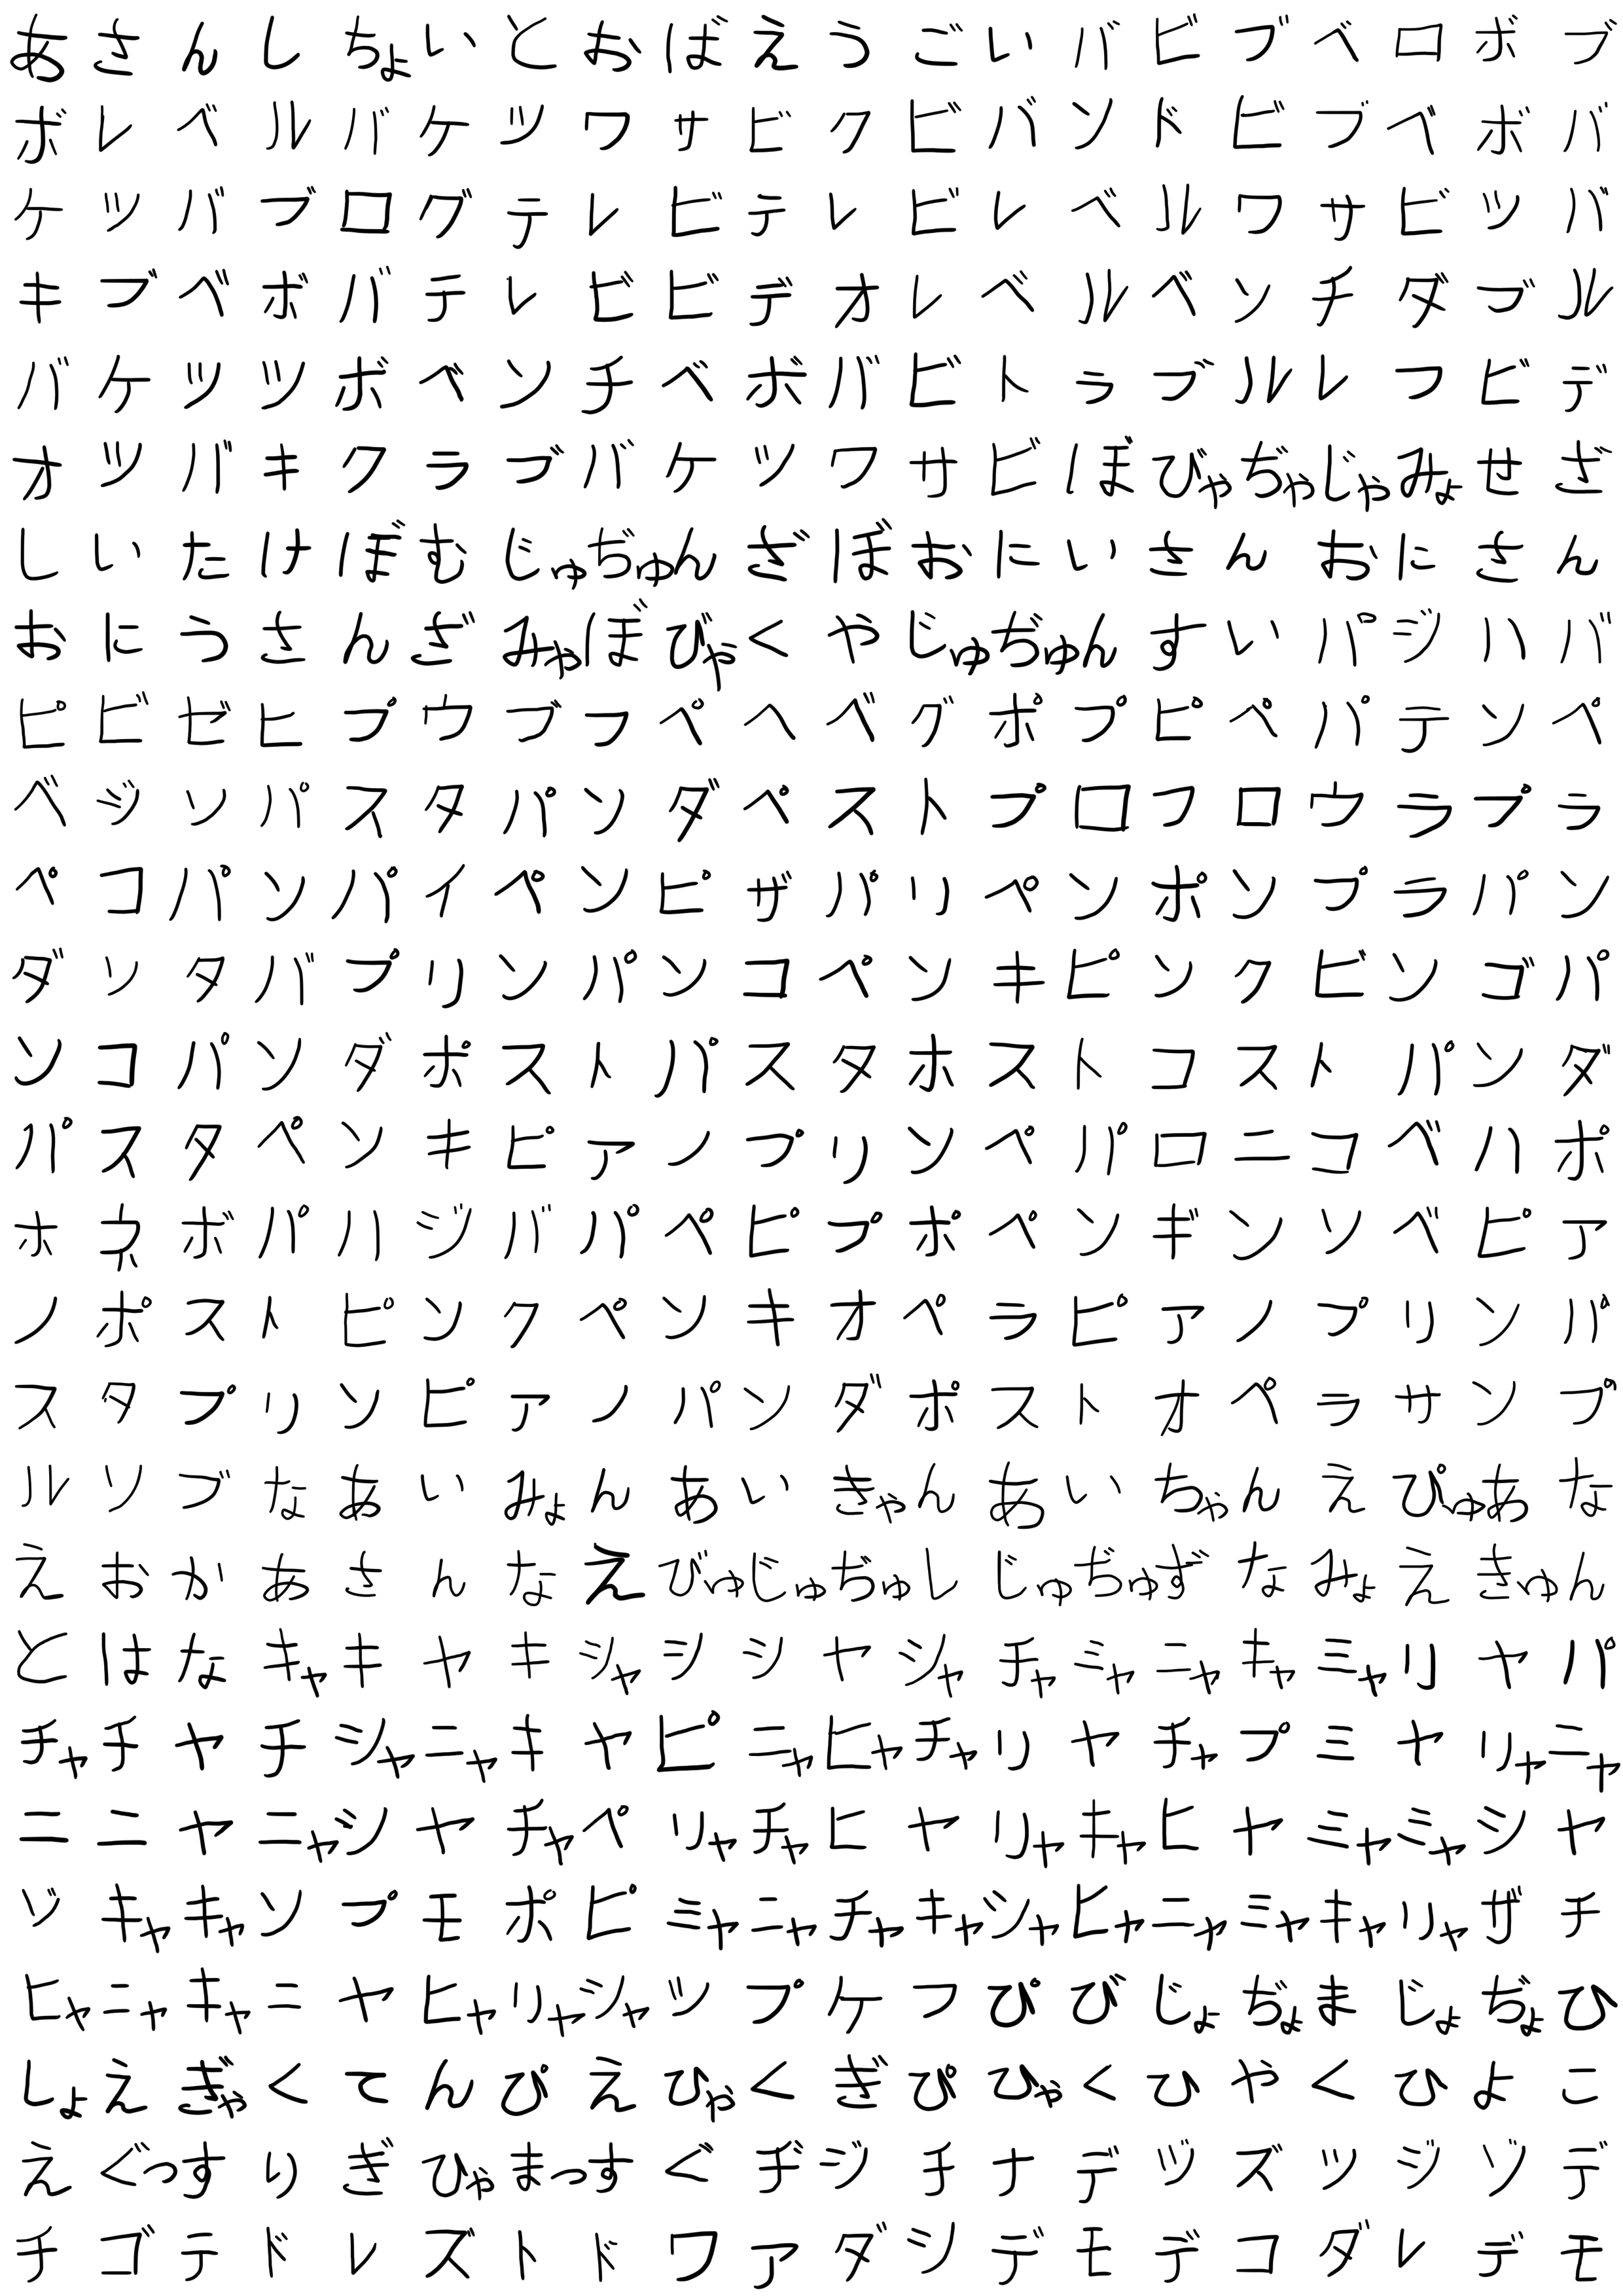 あさんしちょいとおばえうごいバビブベロボブ
ボレベルバケツワサビクビバンドビブベボバ
ケツバブログテレビテレビレベルワサビツバ
キブベボバテレビビデオレベルベンチダブル
バケツツボベンチベボバビトラブルレフビデ
オツバキクラブバケツワサビぼびゃぢゃじゃみょせざ
しいたけぼむじゅぢゅんざぼおにいさんおにさん
おにうさんざみゃぼびゃくやじゅぢゅんすいパジハバ
ピビゼヒプウブフペヘベグポプピペパテンペ
ベジソパスタパンダペストプロフロウラプラ
ペコパンパイペンピザパリペンポンプラパン
ダソタバプリンパンコペンキピンクビンゴパ
ンコパンダポストパスタホストコストパンダ
パスタペンキピアノプリンペパロニコベハポ
ホネボパハジバパペピプポペンギンソベピア
ノポストピンクペンキオペラピアノプリンパ
スタプリンピアノパンダポストオペラサンプ
ルソブなあいみょんあいきゃんあいちゃんえぴゅあな
えおかあさんなえびゅじゅぢゅしじゅぢゅずなみょえきゅん
とはなキャキヤキシャシシヤシャチャミャニャキャミャリヤパ
チャチヤチシャニャキヤピニャヒャチャリヤチャプミヤリャニャ
ニニヤニャジヤチャペリャチャヒヤリャキャヒヤミャミャシヤ
ヅキャキャソプモポピミャニャチャキャジャヒャニャミャキャリャザチ
ヒャニャキャニヤヒャリャジャヅプケフぴびじょぢょまじょぢょひ
しょえぎゃくてんぴえひゃくぎぴひゃくひやくひよこ
えぐっすりぎひゃまっすぐヂジチナデヅズッジゾデ
チゴテドレズトドワアダシデモデコダレデモ